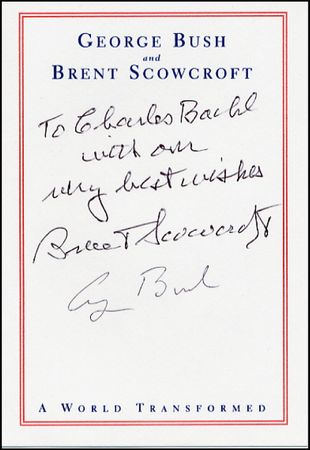 GEORGE BUSH
and
BRENT SCOWCROFT
To Charles
with our
very best wishes
Brent Scowcroft
Bush
A WORLD TRANSFORMED